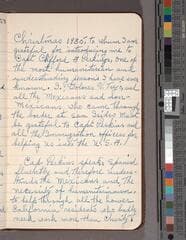 Christmas 1935, to whom I am
grateful for introducing me to
Capt. Clifford Perkins, one of
the most humanitarian and
understanding persons I have ever
known, I. P. Colonel
all the Mexicans and
Mexicans who came through
the border at San Ysidro must
be grateful to Capt. Perkins and
all the Immigration officers for
helping us into the U.S.A.!
Capt. Perkins speaks Spanish
fluently and therefore under-
stands the Mexicans and the
necessity of humanitarianism
to help through all the
California residents who
need each more than Charity!